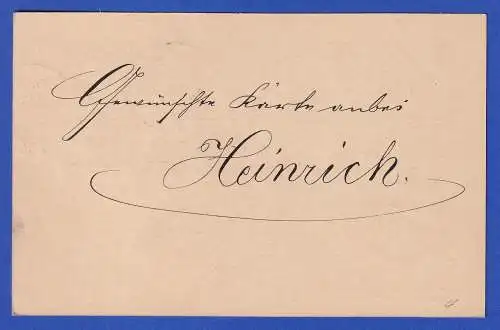 Gewünschte Karte anbei
Heinrich.